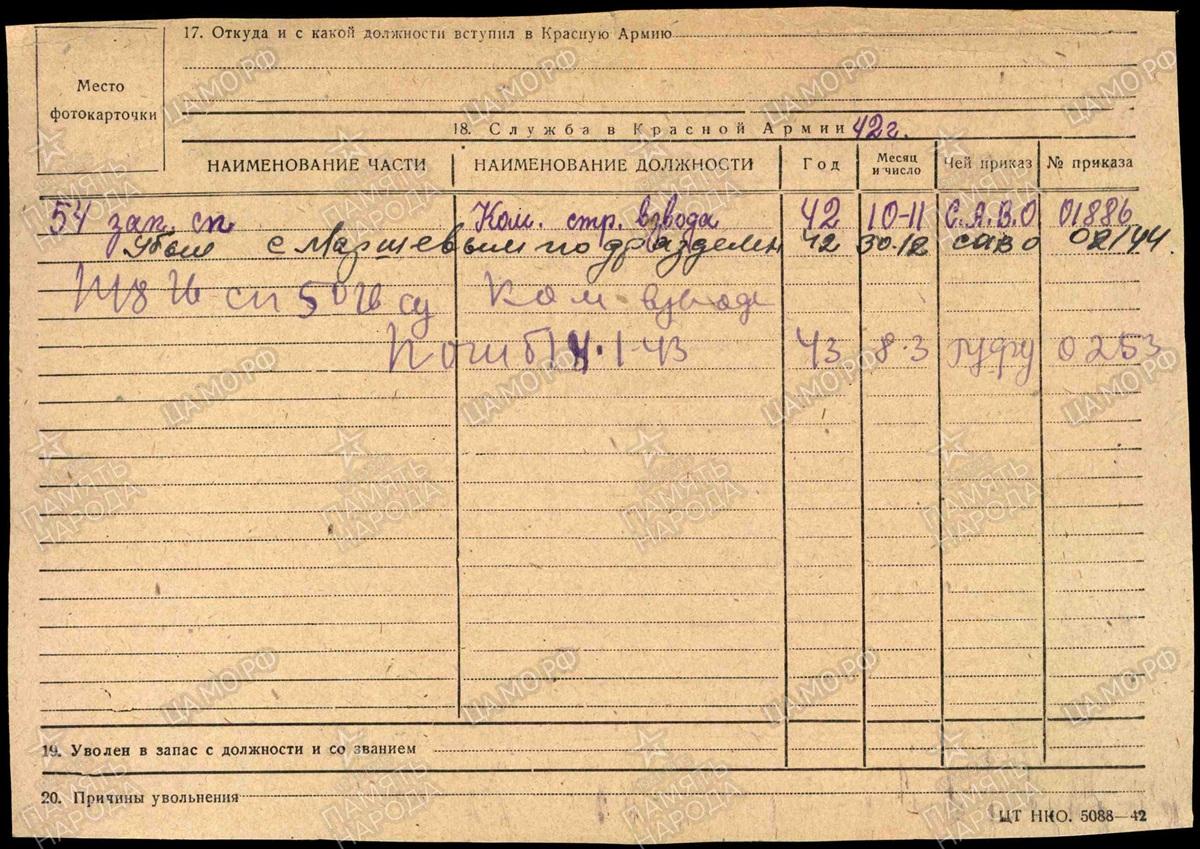 17. Откуда и с какой должности вступил в Красную Армию
Место
фотокарточки
18. Служба в Красной Армии 42 г.
НАИМЕНОВАНИЕ ЧАСТИ НАИМЕНОВАНИЕ ДОЛЖНОСТИ Год Месяц и число Чей приказ № приказа
54 зап. сп Ком. стр. взвода 42 10-11 С.А.В.О 01886
Убыл с Маршевым подразделен 42 30.12 САВО 02144.
сп 50 сд Ком взвода
Погиб 1-43 43 8.3 ГУФУ 0253
19. Уволен в запас с должности и со званием
20. Причины увольнения
ЦТ НКО. 5088—42
ЦАМО.РФ
ПАМЯТЬ НАРОДА